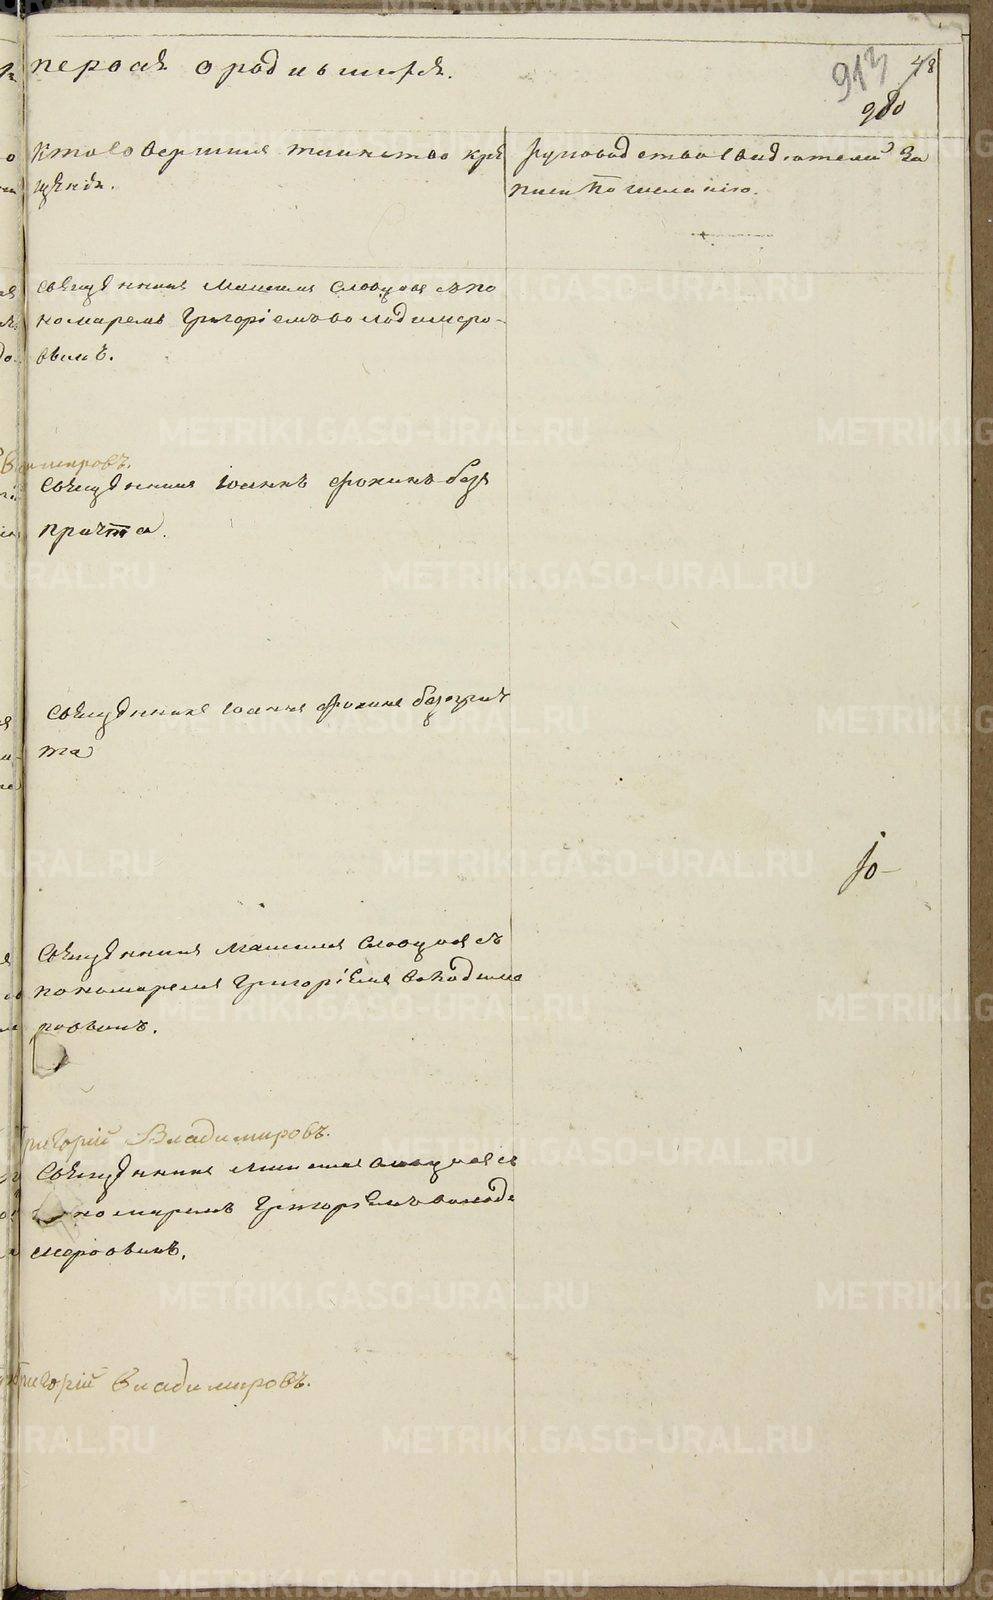 первая о родившихся.
913
48
980
Кто совершил таинство кре
щенія.
Рукоприкладство свидетелей за
писи по желанію.
священник Максим Словцов с по
номарем Григоріем Володимеро-
вым.
Владимиров.
священник Іоанн Фокин без
причта.
священник Іоанн Фокин без прич
та
священник Максим Словцов с
пономарем Григоріем Володиме
ровым.
Григорій Владимировъ.
священник Максим Словцов с
пономарем Григоріем Володи
меровым.
Григорій Владимировъ.
METRIKI.GASO-URAL.RU